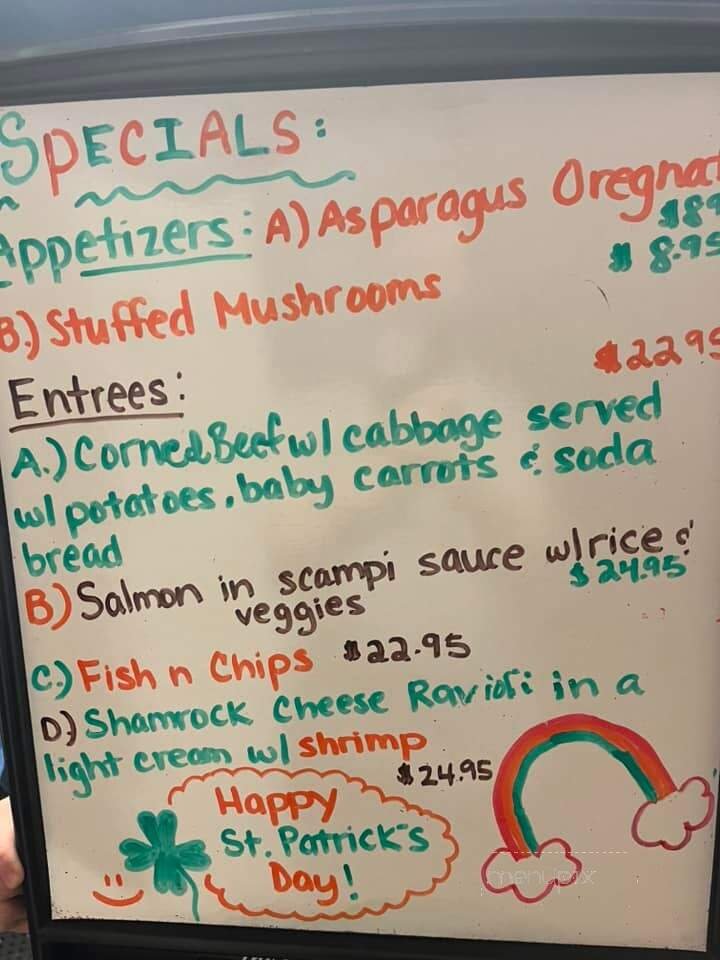 SPECIALS:
Appetizers: A) Asparagus Oregnat
$89
$8.95
B.) Stuffed Mushrooms
Entrees:
$22.95
A.) Corned Beef w/ cabbage served
w/ potatoes, baby carrots & soda
bread
B) Salmon in scampi sauce w/ rice &
veggies
$24.95
C.) Fish n Chips $22.95
D.) Shamrock Cheese Ravioli in a
light cream w/ shrimp
$24.95
Happy
St. Patrick's
Day!
menupix